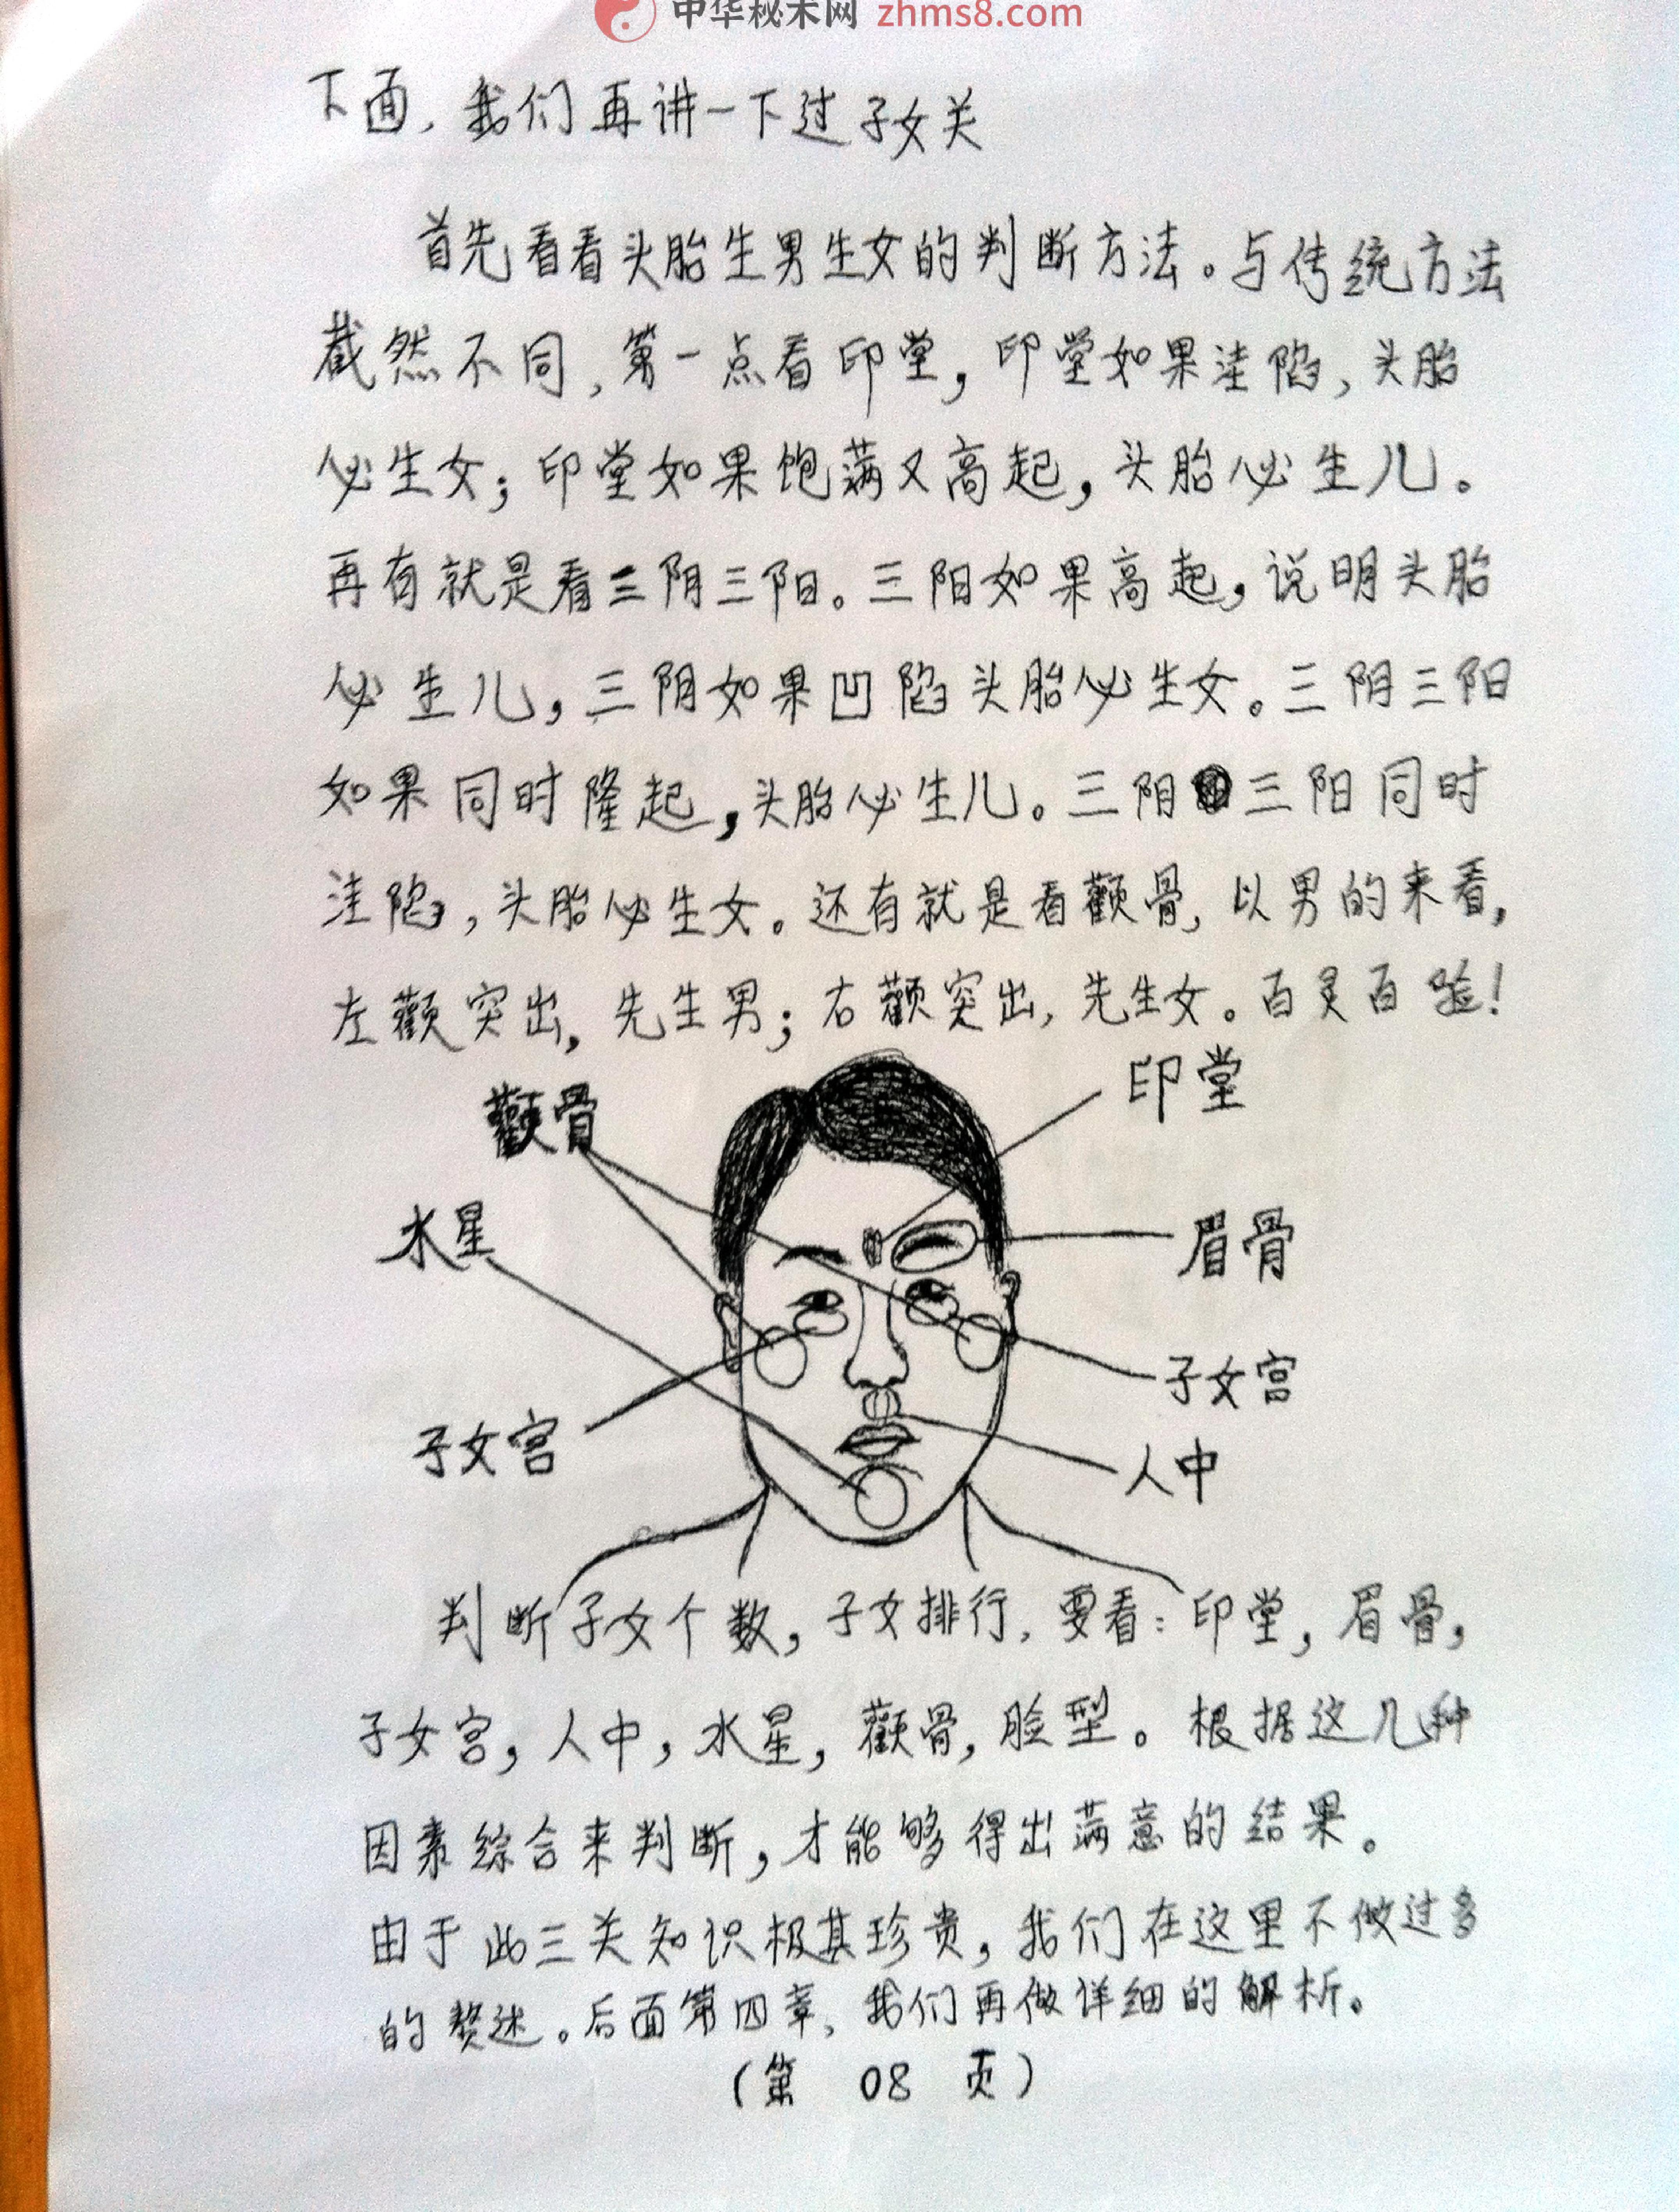 中华秘术网 zhms8.com
下面，我们再讲一下过子女关
首先看看头胎生男生女的判断方法。与传统方法
截然不同，第一点看印堂，印堂如果洼陷，头胎
必生女；印堂如果饱满又高起，头胎必生儿。
再有就是看三阴三阳。三阳如果高起，说明头胎
必生儿，三阴如果凹陷头胎必生女。三阴三阳
如果同时隆起，头胎必生儿。三阴三阳同时
洼陷，头胎必生女。还有就是看颧骨，以男的来看，
左颧突出，先生男；右颧突出，先生女。百灵百验！
颧骨
印堂
水星
眉骨
子女宫
子女宫
人中
判断子女个数，子女排行，要看：印堂，眉骨，
子女宫，人中，水星，颧骨，脸型。根据这几种
因素综合来判断，才能够得出满意的结果。
由于此三关知识极其珍贵，我们在这里不做过多
的赘述。后面第四章，我们再做详细的解析。
（第 08 页）